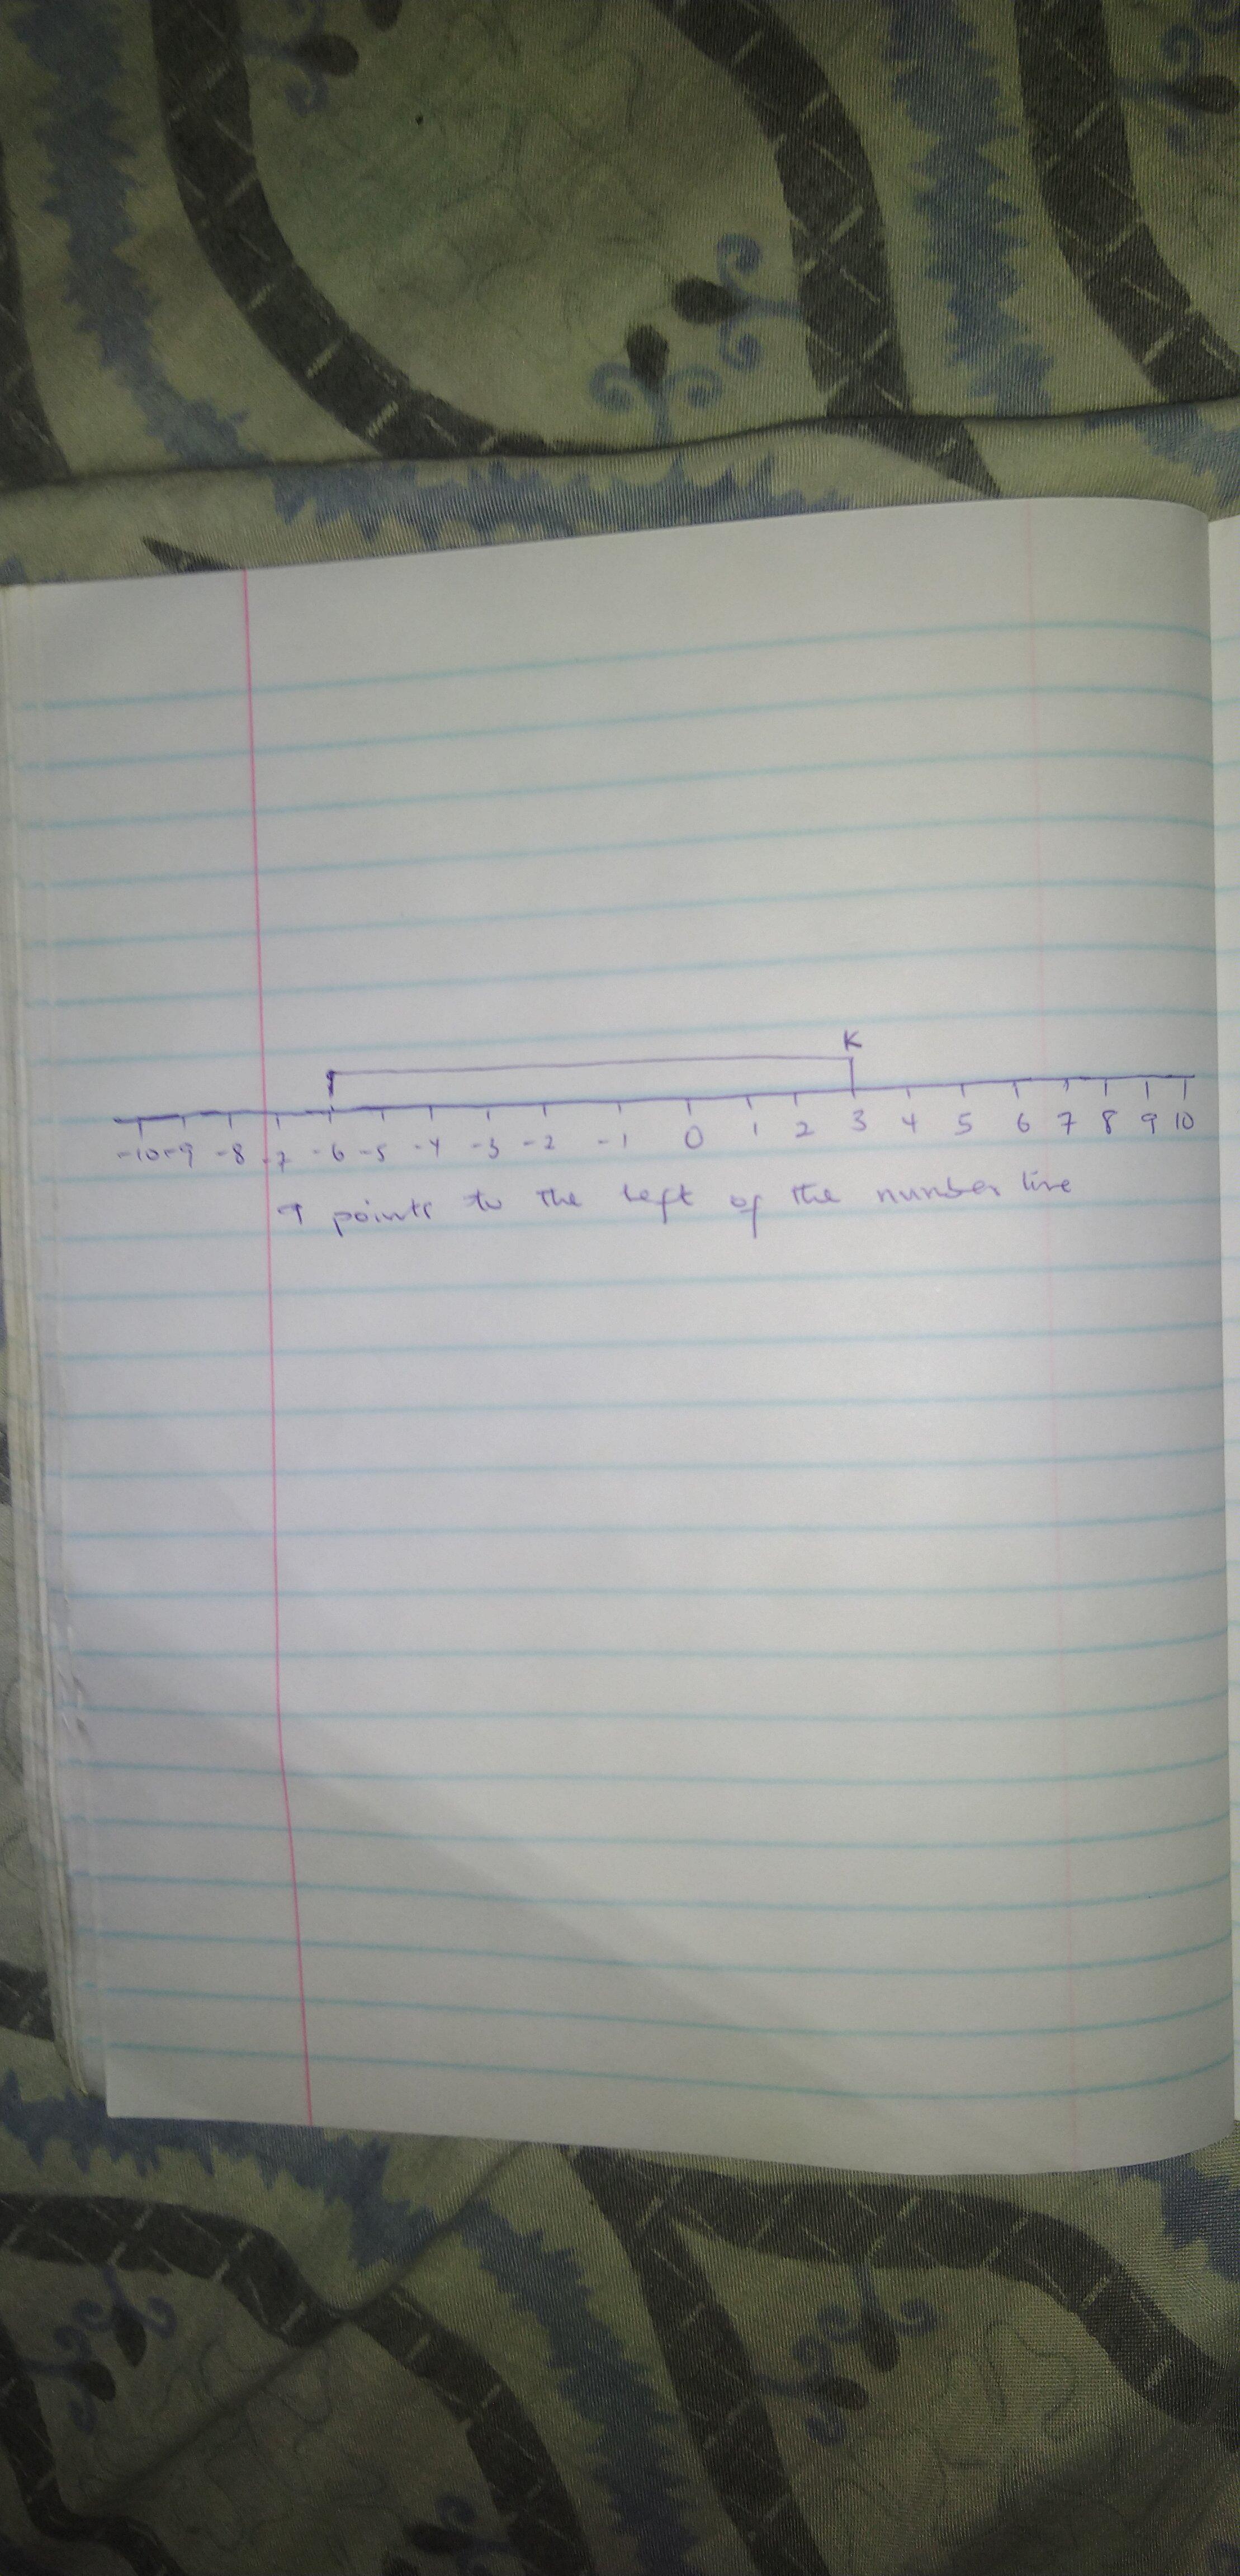 K
-10 -9 -8 -7 -6 -5 -4 -3 -2 -1 0 1 2 3 4 5 6 7 8 9 10
points to the left of the number line